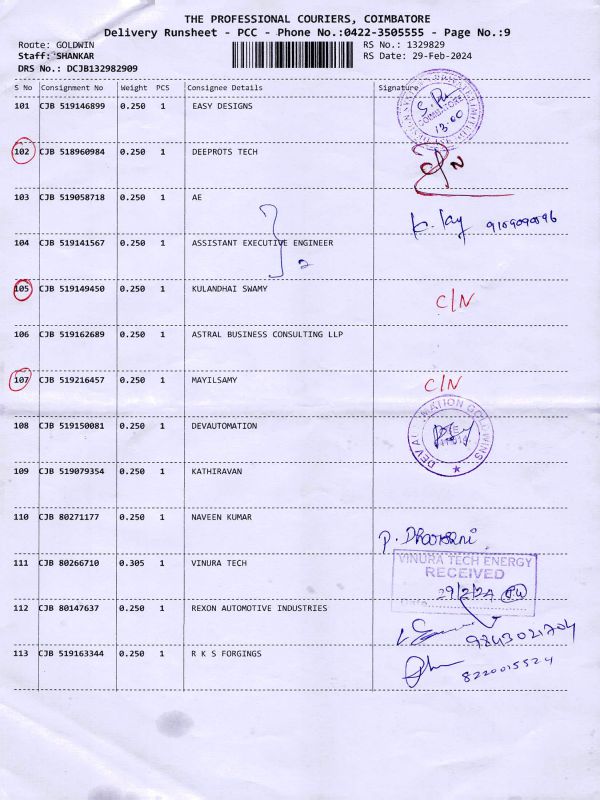 THE PROFESSIONAL COURIERS, COIMBATORE
Delivery Runsheet - PCC - Phone No.:0422-3505555 - Page No.:9
Route: GOLDWIN RS No.: 1329829
Staff: SHANKAR RS Date: 29-Feb-2024
DRS No.: DCJB132982909
S No Consignment No Weight PCS Consignee Details Signature
101 CJB 519146899 0.250 1 EASY DESIGNS
COIMBATORE
13.00
102 CJB 518960984 0.250 1 DEEPROTS TECH
N
103 CJB 519058718 0.250 1 AE
104 CJB 519141567 0.250 1 ASSISTANT EXECUTIVE ENGINEER
2
105 CJB 519149450 0.250 1 KULANDHAI SWAMY C/N
106 CJB 519162689 0.250 1 ASTRAL BUSINESS CONSULTING LLP
107 CJB 519216457 0.250 1 MAYILSAMY C/N
108 CJB 519150081 0.250 1 DEVAUTOMATION
109 CJB 519079354 0.250 1 KATHIRAVAN
110 CJB 80271177 0.250 1 NAVEEN KUMAR
111 CJB 80266710 0.305 1 VINURA TECH
VINURA TECH ENERGY
RECEIVED
29/2/24
112 CJB 80147637 0.250 1 REXON AUTOMOTIVE INDUSTRIES
9843021704
113 CJB 519163344 0.250 1 R K S FORGINGS
8220015524